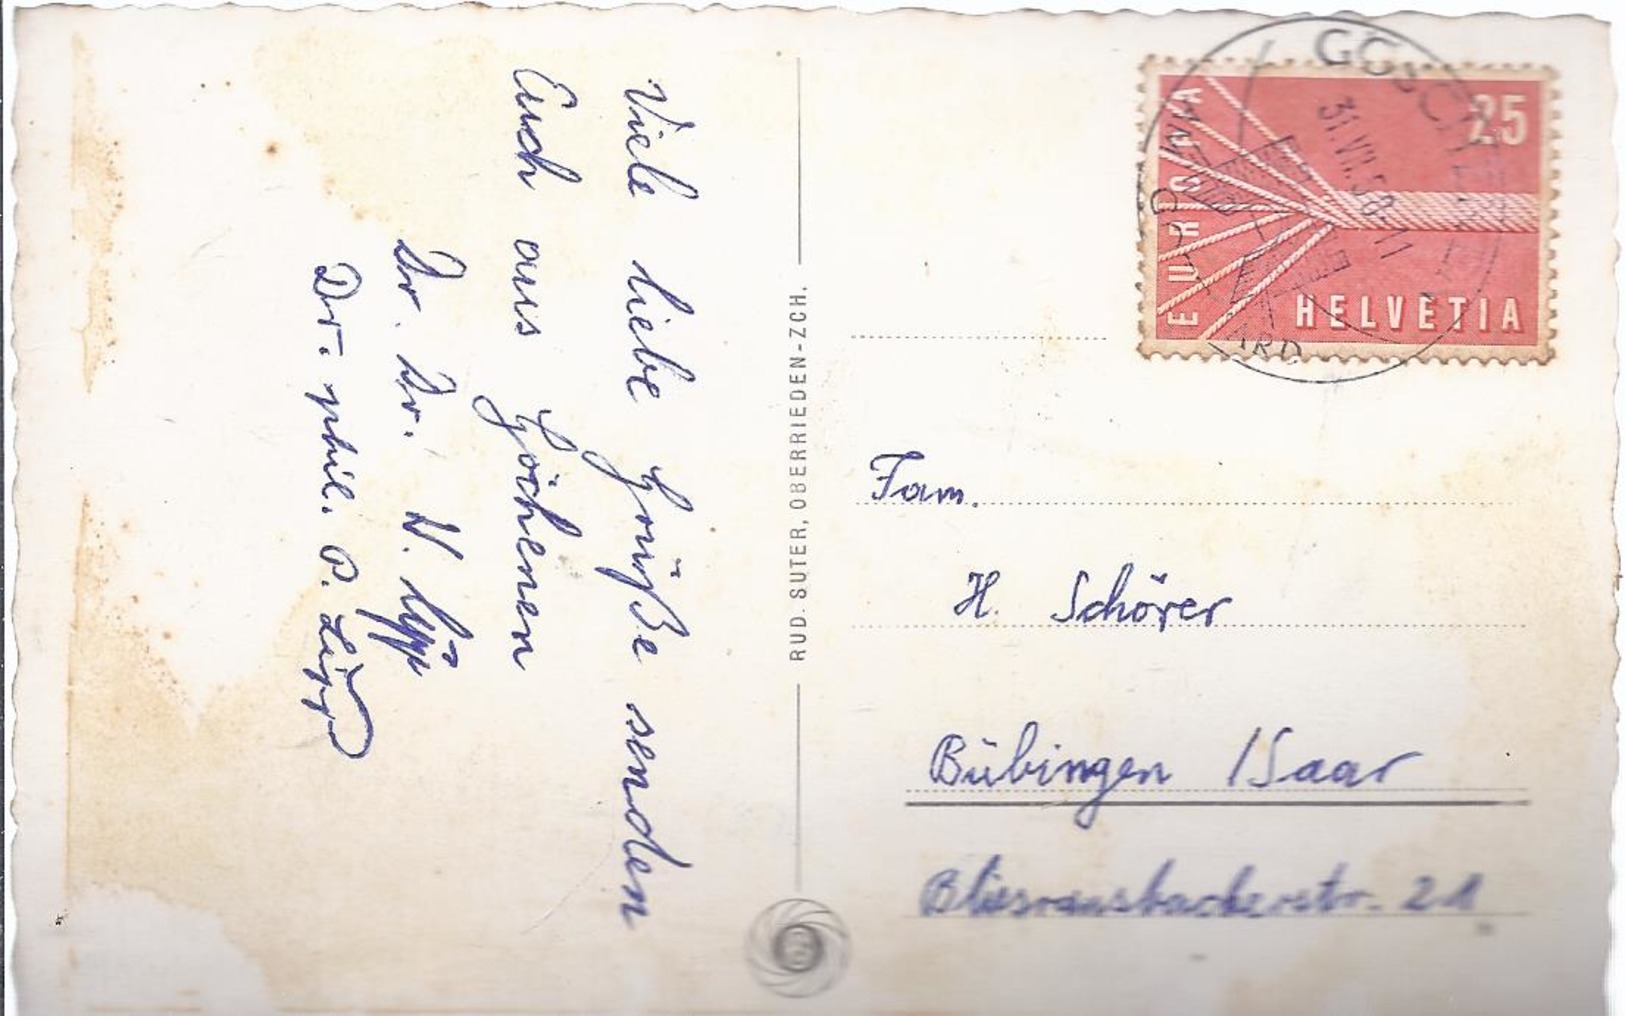 Viele liebe Grüße senden
Euch aus Göschenen
Dr. Dr. N.
Dr. phil. P. Lipp
RUD. SUTER, OBERRIEDEN-ZCH.
EUROPA
25
HELVETIA
31.VII.58-11
Fam.
H. Schörer
Bübingen /Saar
Bliesransbacherstr. 21